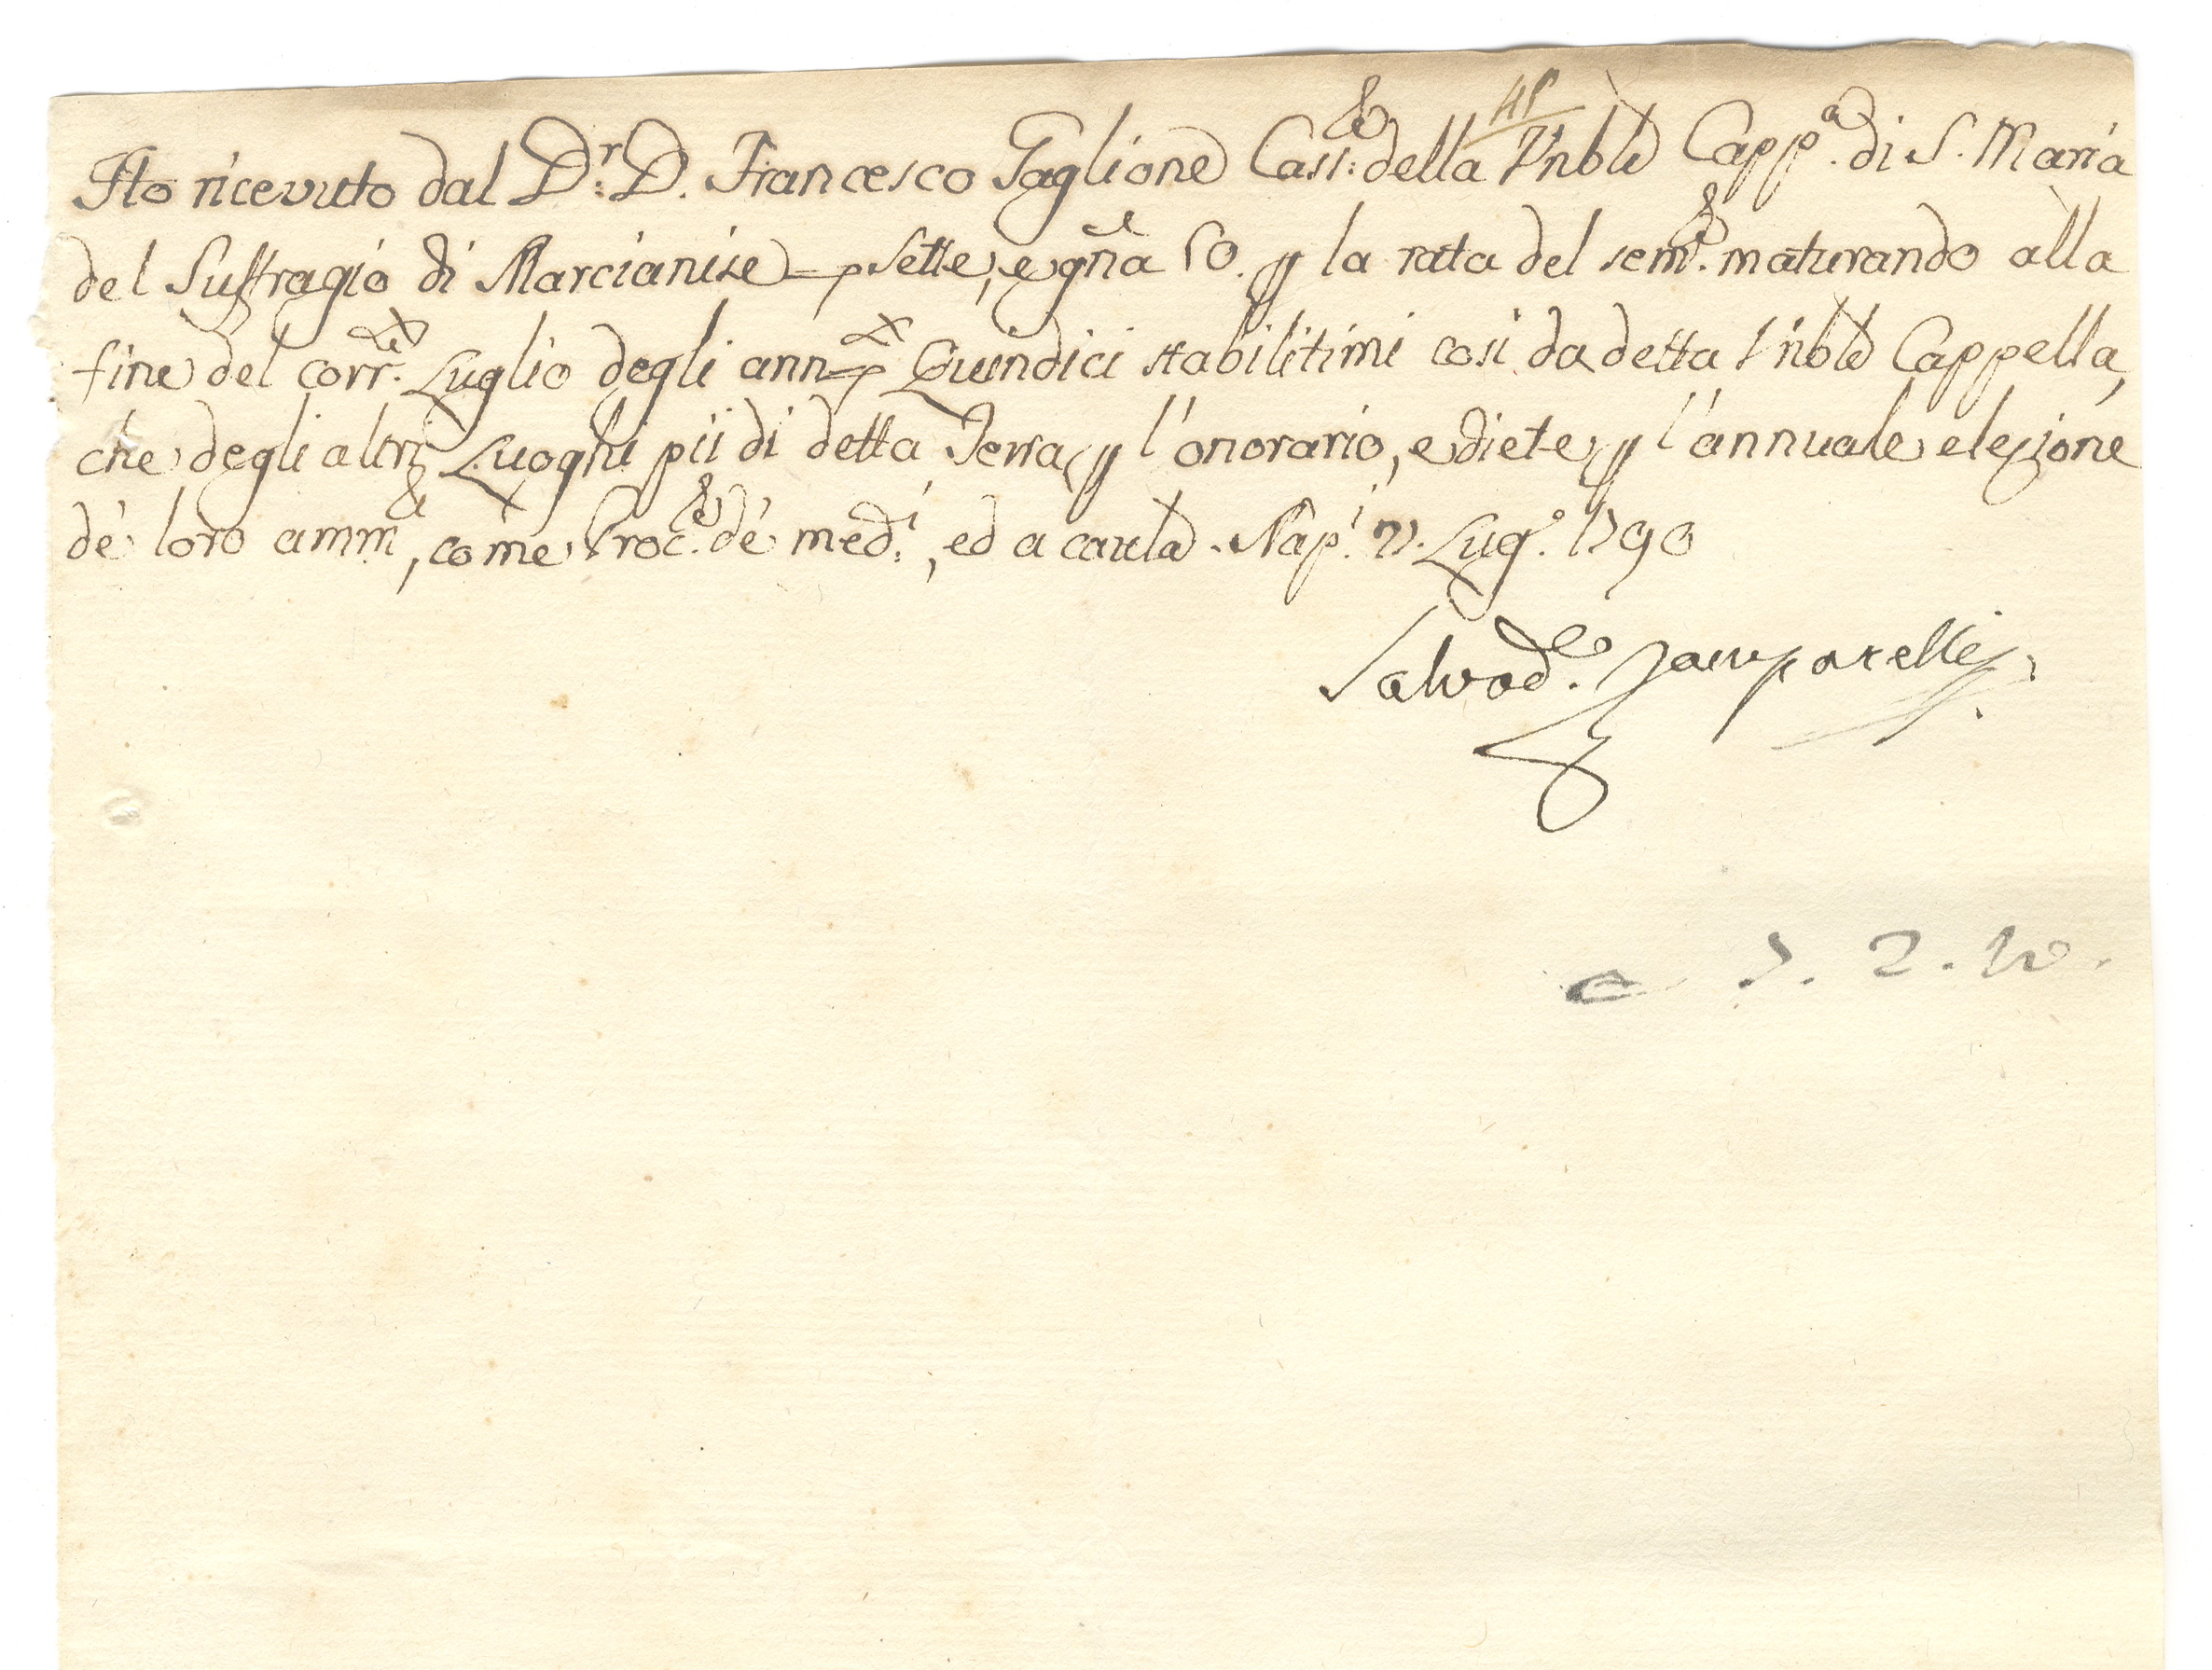 Ho ricevuto dal D.r D. Francesco Taglione Cass.re della Vnble Capp.a di S. Maria
del Suffragio di Marcianise = sette, e gña 50. p la rata del sem.re maturando alla
fine del corr.te Luglio degli ann Quindici stabilitimi cosi da detta Vnble Cappella,
che degli altri Luoghi pii di detta Terra p l'onorario, e diete p l'annuale elezione
de' loro amm.ri, come Proc.re de' med.i, ed a cautela. Nap.i Lug.o 1790
Salvad.e Zamparelli